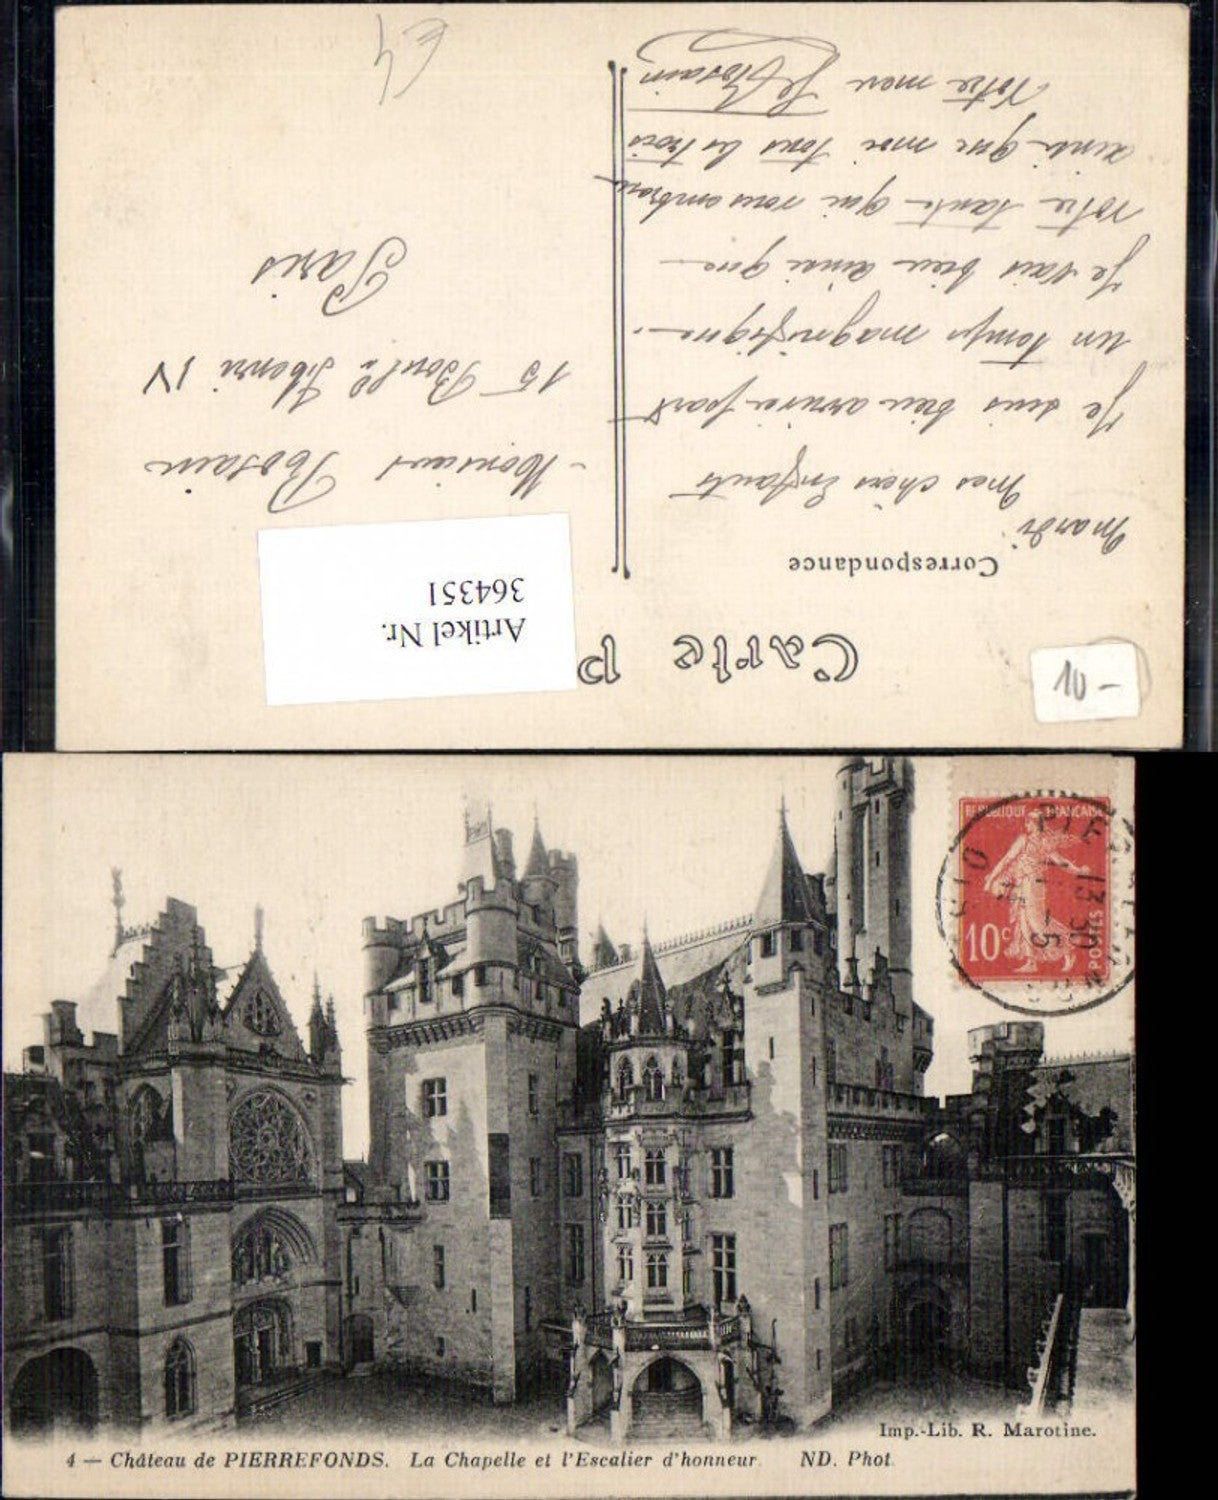 Carte P
Correspondance
Mardi
Mes chers Enfants
Je suis bien arrivé par
un temps magnifique.
Je vais bien ainsi que
votre tante qui vous embrasse
ainsi que moi tous les trois
Votre
Monsieur
15 Boul. Henri IV
Paris
Artikel Nr.
364351
10 -
REPUBLIQUE FRANÇAISE
10c
POSTES
PIERREFONDS
13 30
11 - 5
OISE
Imp.-Lib. R. Marotine.
4 — Château de PIERREFONDS. La Chapelle et l'Escalier d'honneur. ND. Phot.